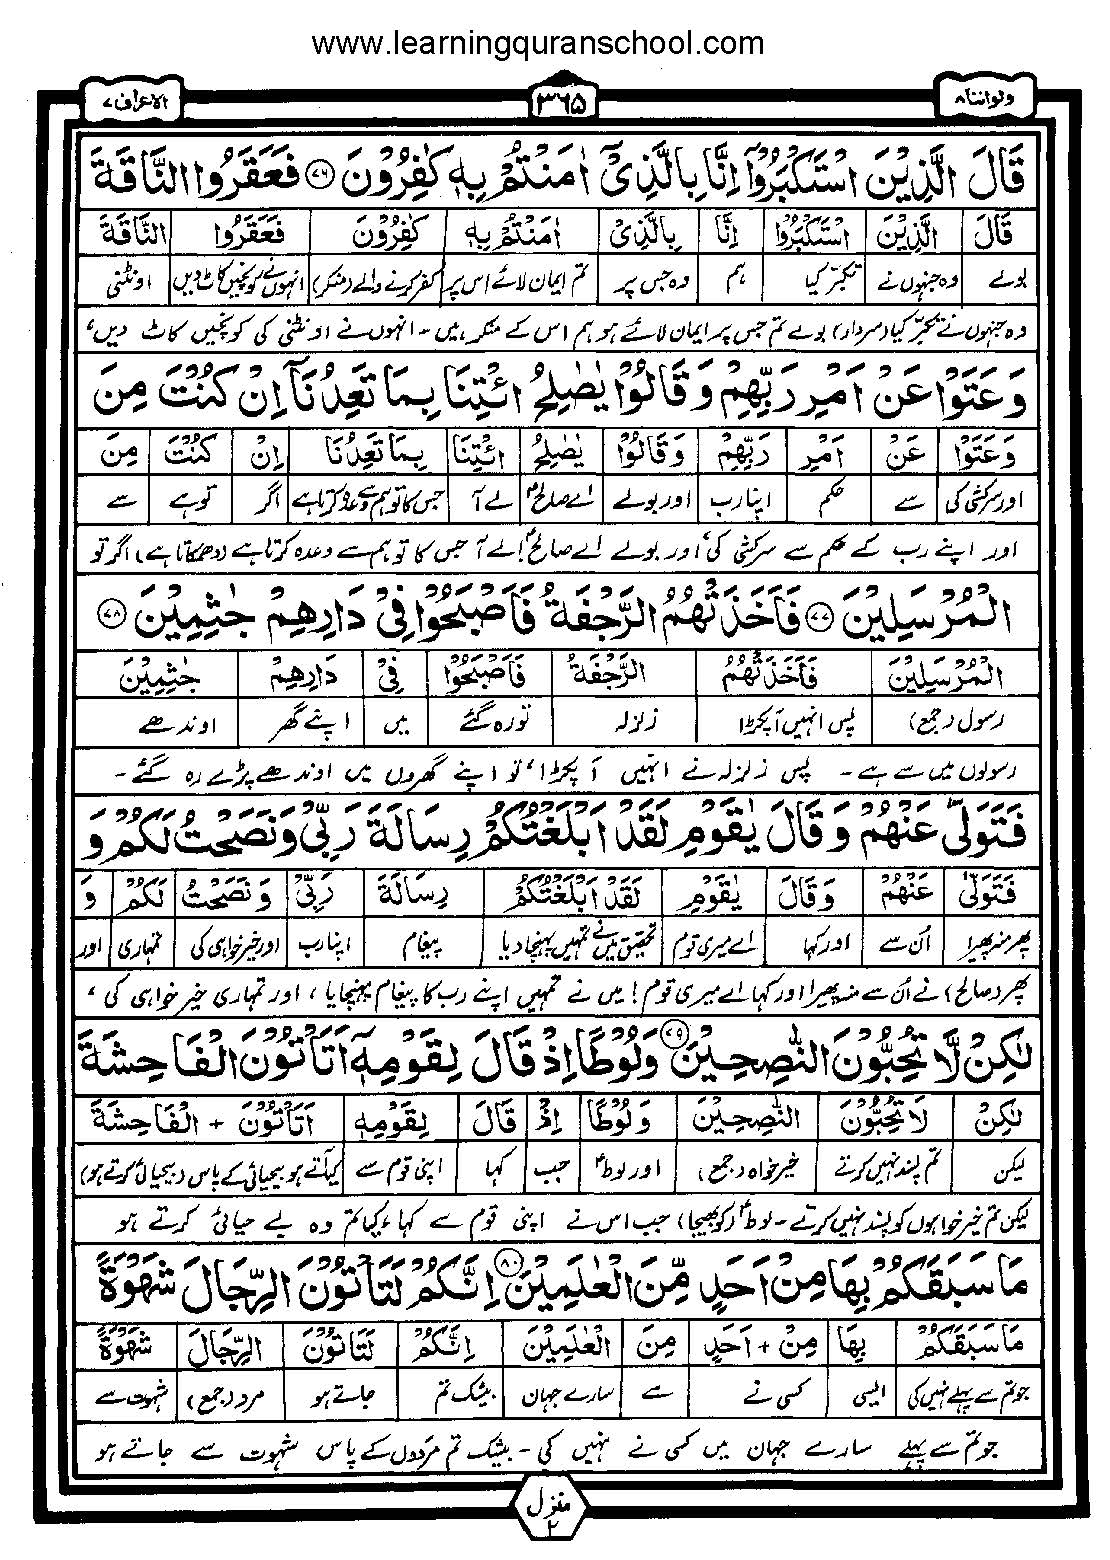 www.learningquranschool.com
ولواننا ۸
۳۶۵
الاعراف ۷
قَالَ الَّذِيْنَ اسْتَكْبَرُوْۤا اِنَّا بِالَّذِيْۤ اٰمَنْتُمْ بِهٖ كٰفِرُوْنَ ۷۶ فَعَقَرُوا النَّاقَةَ
قَالَ الَّذِيْنَ اسْتَكْبَرُوْا اِنَّا بِالَّذِيْ اٰمَنْتُمْ بِهٖ كٰفِرُوْنَ فَعَقَرُوا النَّاقَةَ
بولے وہ جنہوں نے تکبّر کیا ہم وہ جس پر تم ایمان لائے اس پر کفر کرنے والے (منکر) انہوں نے کونچیں کاٹ دیں اونٹنی
وہ جنہوں نے تکبّر کیا (سردار) بولے تم جس پر ایمان لائے ہو ہم اس کے منکر ہیں - انہوں نے اونٹنی کی کونچیں کاٹ دیں،
وَعَتَوْا عَنْ اَمْرِ رَبِّهِمْ وَقَالُوْا يٰصٰلِحُ ائْتِنَا بِمَا تَعِدُنَاۤ اِنْ كُنْتَ مِنَ
وَعَتَوْا عَنْ اَمْرِ رَبِّهِمْ وَقَالُوْا يٰصٰلِحُ ائْتِنَا بِمَا تَعِدُنَا اِنْ كُنْتَ مِنَ
اور سرکشی کی سے حکم اپنا رب اور بولے اے صالحؑ لے آ جس کا تو ہم سے وعدہ کرتا ہے اگر تو ہے سے
اور اپنے رب کے حکم سے سرکشی کی، اور بولے اے صالحؑ! لے آ جس کا تو ہم سے وعدہ کرتا ہے (دھمکاتا ہے) اگر تو
الْمُرْسَلِيْنَ ۷۷ فَاَخَذَتْهُمُ الرَّجْفَةُ فَاَصْبَحُوْا فِيْ دَارِهِمْ جٰثِمِيْنَ ۷۸
الْمُرْسَلِيْنَ فَاَخَذَتْهُمُ الرَّجْفَةُ فَاَصْبَحُوْا فِيْ دَارِهِمْ جٰثِمِيْنَ
رسول (جمع) پس انہیں آپکڑا زلزلہ تو رہ گئے میں اپنے گھر اوندھے
رسولوں میں سے ہے - پس زلزلہ نے انہیں آ پکڑا، تو اپنے گھروں میں اوندھے پڑے رہ گئے -
فَتَوَلّٰى عَنْهُمْ وَقَالَ يٰقَوْمِ لَقَدْ اَبْلَغْتُكُمْ رِسَالَةَ رَبِّيْ وَنَصَحْتُ لَكُمْ وَ
فَتَوَلّٰى عَنْهُمْ وَقَالَ يٰقَوْمِ لَقَدْ اَبْلَغْتُكُمْ رِسَالَةَ رَبِّيْ وَنَصَحْتُ لَكُمْ وَ
پھر منہ پھیرا اُن سے اور کہا اے میری قوم تحقیق میں نے تمہیں پہنچا دیا پیغام اپنا رب اور خیر خواہی کی تمہاری اور
پھر (صالح) نے اُن سے منہ پھیرا اور کہا اے میری قوم! میں نے تمہیں اپنے رب کا پیغام پہنچایا، اور تمہاری خیر خواہی کی،
لٰكِنْ لَّا تُحِبُّوْنَ النّٰصِحِيْنَ ۷۹ وَلُوْطًا اِذْ قَالَ لِقَوْمِهٖۤ اَتَاْتُوْنَ الْفَاحِشَةَ
لٰكِنْ لَا تُحِبُّوْنَ النّٰصِحِيْنَ وَلُوْطًا اِذْ قَالَ لِقَوْمِهٖ اَتَاْتُوْنَ + الْفَاحِشَةَ
لیکن تم پسند نہیں کرتے خیر خواہ (جمع) اور لوطؑ جب کہا اپنی قوم سے کیا آتے ہو بیحیائی کے پاس (بیحیائی کرتے ہو)
لیکن تم خیر خواہوں کو پسند نہیں کرتے - لوطؑ (کو بھیجا) جب اس نے اپنی قوم سے کہا، کیا تم وہ بے حیائی کرتے ہو
مَا سَبَقَكُمْ بِهَا مِنْ اَحَدٍ مِّنَ الْعٰلَمِيْنَ ۸۰ اِنَّكُمْ لَتَاْتُوْنَ الرِّجَالَ شَهْوَةً
مَا سَبَقَكُمْ بِهَا مِنْ + اَحَدٍ مِنَ الْعٰلَمِيْنَ اِنَّكُمْ لَتَاْتُوْنَ الرِّجَالَ شَهْوَةً
جو تم سے پہلے نہیں کی ایسی کسی نے سے سارے جہان بیشک تم جاتے ہو مرد (جمع) شہوت سے
جو تم سے پہلے سارے جہان میں کسی نے نہیں کی - بیشک تم مردوں کے پاس شہوت سے جاتے ہو
منزل ۲